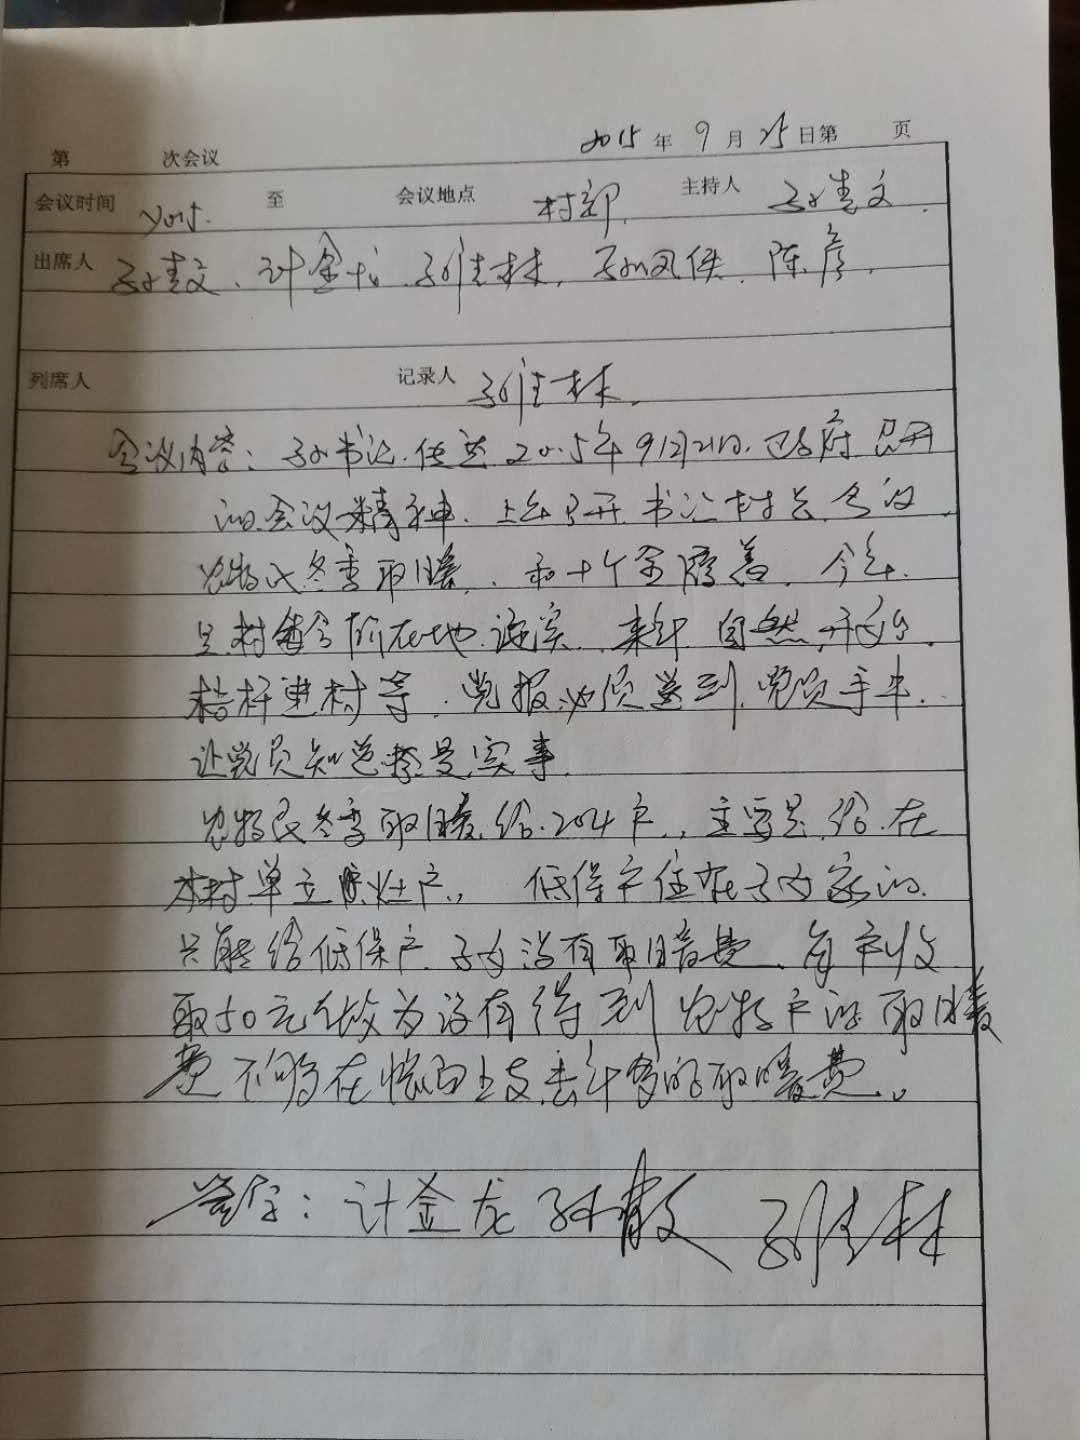 2015年9月25日第 页
第 次会议
会议时间 至 会议地点 村部. 主持人 孙青文.
出席人 孙青文、计金龙、孙佳林、孙凤侠、陈彦.
列席人 记录人 孙佳林.
会议内容:孙书记传达2015年9月21日政府召开
的会议精神.上午召开书记村长会议
农牧民冬季取暖、和十个全覆盖,今年.
旦村 所在地 来年自然
秸杆进村等.党报必须送到党员手中.
让党员知道 是实事.
农牧民冬季取暖给204户,主要是给在
本村单立 灶户, 低保户住在子女家的
只能给低保户子女没有取暖费、每户收
取50元 为没有得到农牧户的取暖
费 不够在 上支去年 的取暖费.
签字:计金龙 孙青文 孙佳林